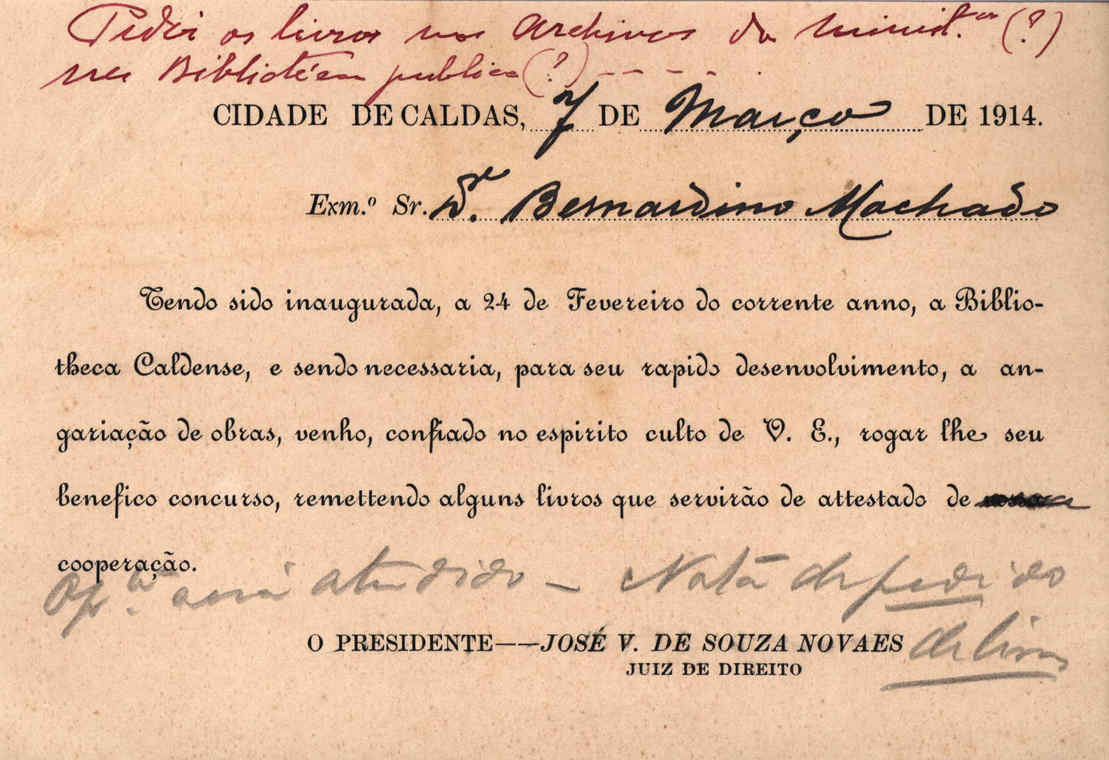 Pedir os livros nos Archivos do minist.os (?)
na Bibliotéca publica (?) - - - -
CIDADE DE CALDAS, 7 DE Março DE 1914.
Exm.º Sr. Dr. Bernardino Machado
Tendo sido inaugurada, a 24 de Fevereiro do corrente anno, a Biblio-
theca Caldense, e sendo necessaria, para seu rapido desenvolvimento, a an-
gariação de obras, venho, confiado no espirito culto de V. E., rogar lhe seu
benefico concurso, remettendo alguns livros que servirão de attestado de
cooperação.
será attendido — Nota de pedido
de livros
O PRESIDENTE——JOSÉ V. DE SOUZA NOVAES
JUIZ DE DIREITO